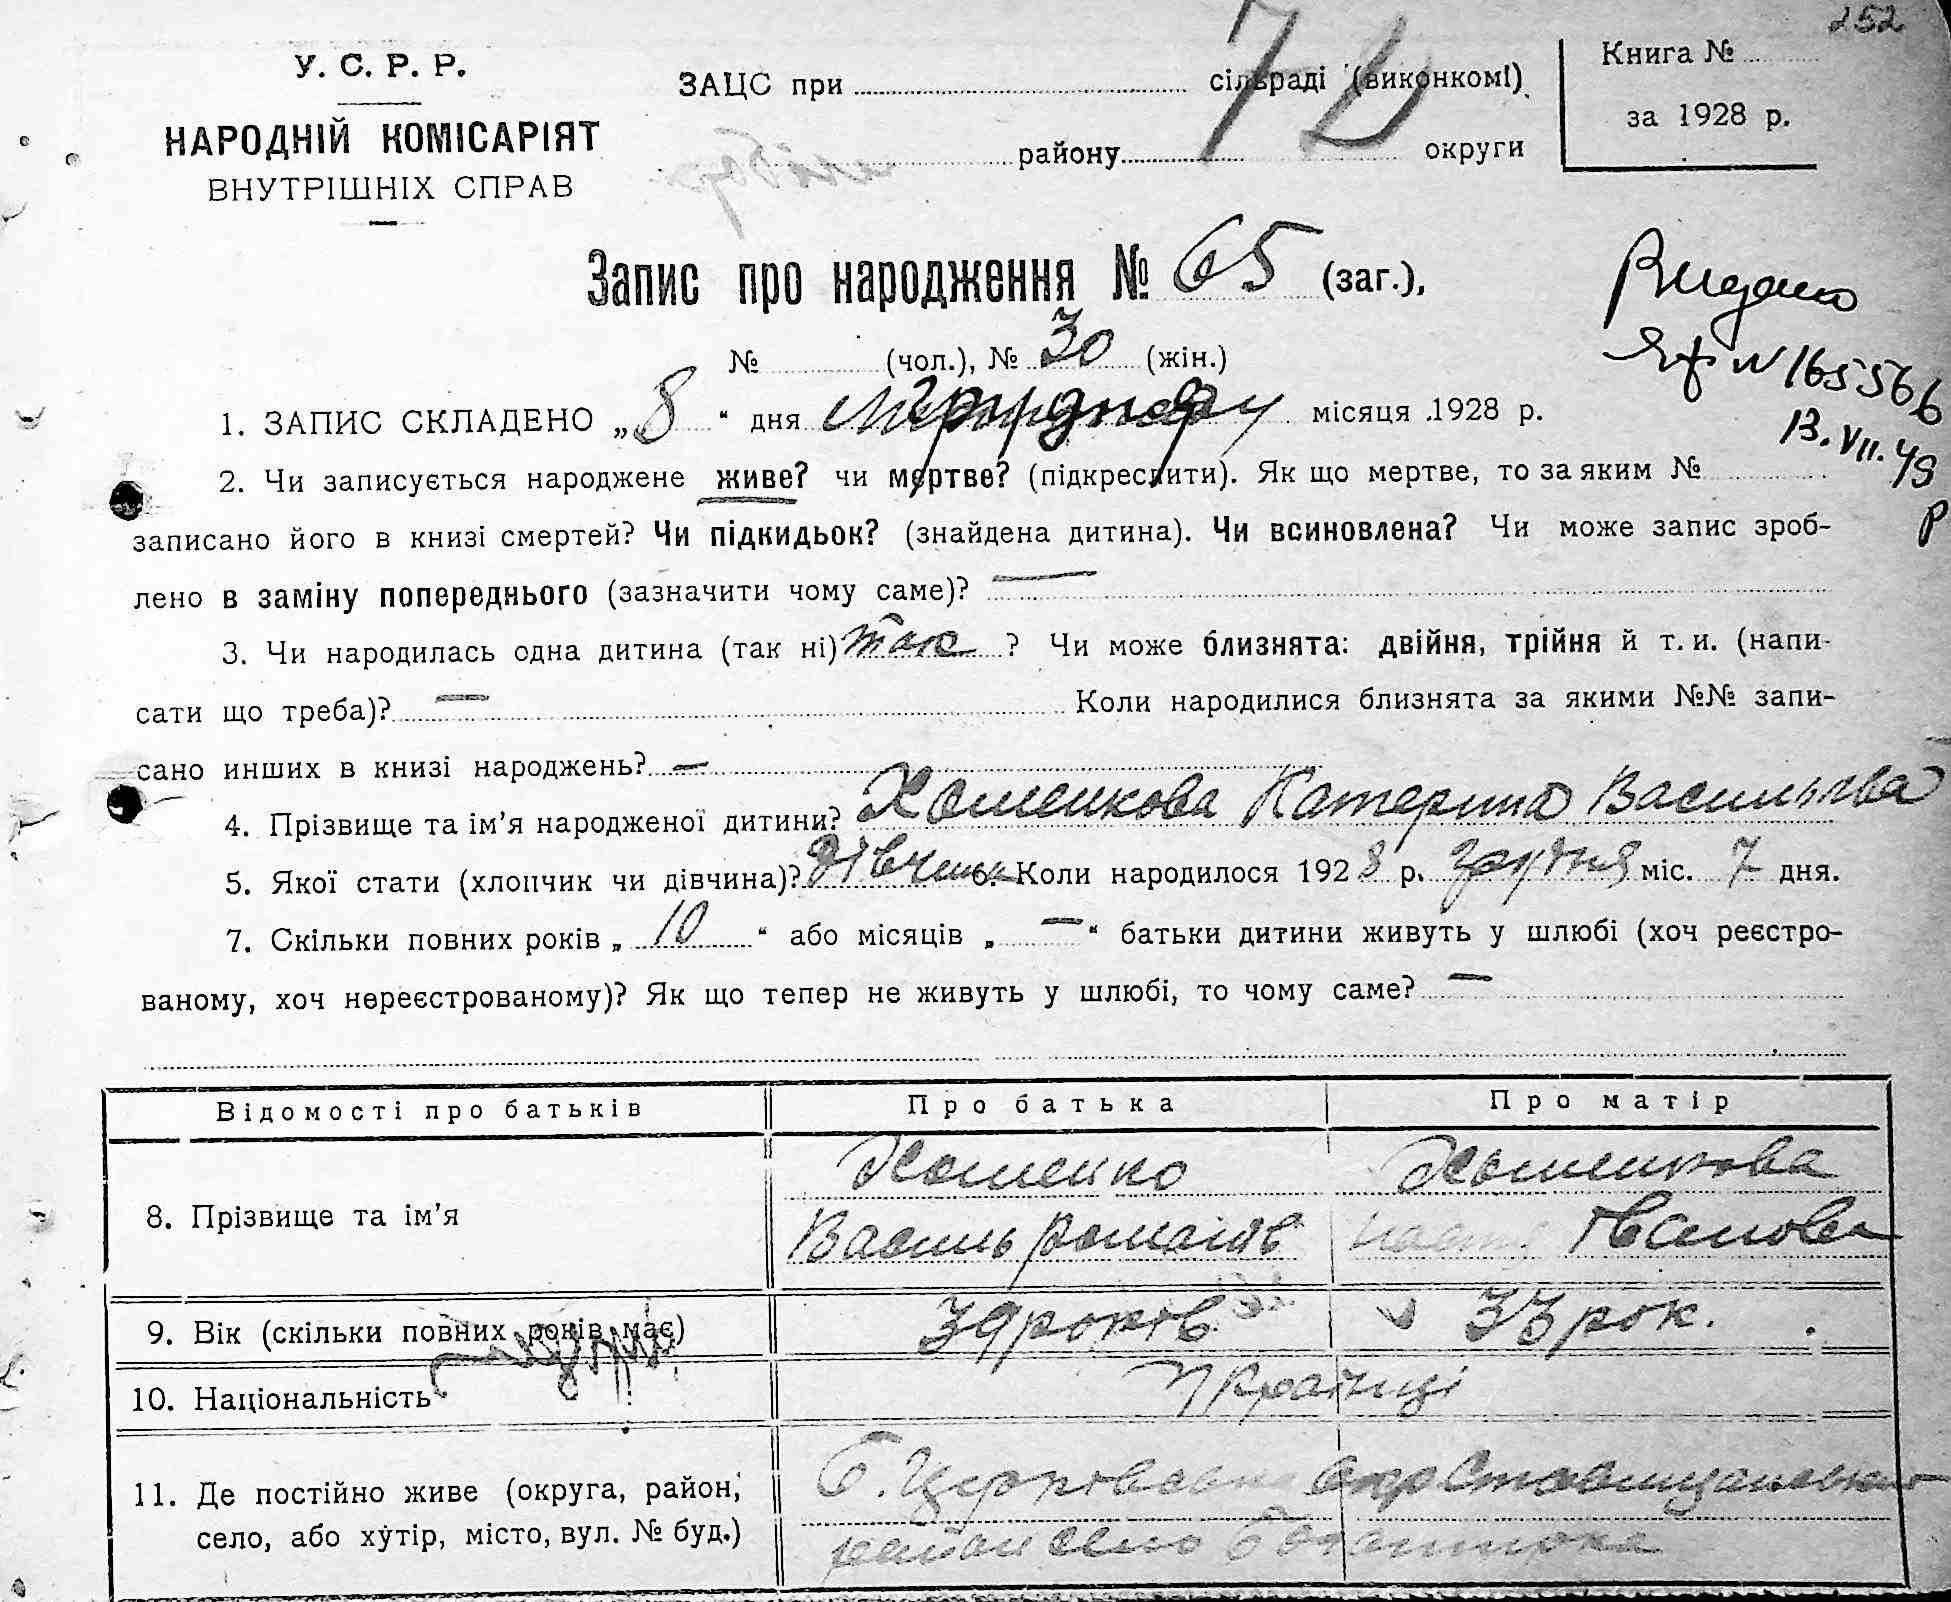 252
У. С. Р. Р.
НАРОДНІЙ КОМІСАРІЯТ
ВНУТРІШНІХ СПРАВ
ЗАЦС при сільраді (виконкомі)
району округи
Книга №
за 1928 р.
Запис про народження № 65 (заг.),
№ (чол.), № 30 (жін.)
Видано
№ 165566
13.VII.49
Р
1. ЗАПИС СКЛАДЕНО „8“ дня місяця 1928 р.
2. Чи записується народжене живе? чи мертве? (підкреслити). Як що мертве, то за яким №
записано його в книзі смертей? Чи підкидьок? (знайдена дитина). Чи всиновлена? Чи може запис зроб-
лено в заміну попереднього (зазначити чому саме)? —
3. Чи народилась одна дитина (так ні) так ? Чи може близнята: двійня, трійня й т. и. (напи-
сати що треба)? — Коли народилися близнята за якими №№ запи-
сано инших в книзі народжень? —
4. Прізвище та ім’я народженої дитини? Хоменкова Катерина Васильєва
5. Якої стати (хлопчик чи дівчина)? дівчина 6. Коли народилося 1928 р. грудня міс. 7 дня.
7. Скільки повних років „10“ або місяців „—“ батьки дитини живуть у шлюбі (хоч реєстро-
ваному, хоч нереєстрованому)? Як що тепер не живуть у шлюбі, то чому саме? —
Відомості про батьків Про батька Про матір
8. Прізвище та ім’я
Хоменко Хоменкова
Василь Романів Іванова
9. Вік (скільки повних років має) 39 років 33 рок.
10. Національність Українці
11. Де постійно живе (округа, район,
село, або хутір, місто, вул. № буд.)
Б. Церківська окр Ставищанський
район село